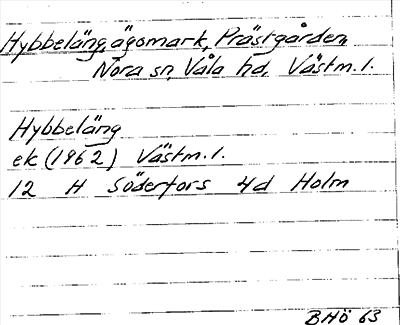 Hybbeläng, ägomark, Prästgården
Nora sn, Våla hd, Västm. l.
Hybbeläng
ek (1962) Västm. l.
12 H Söderfors 4d Holm
BHÖ 63